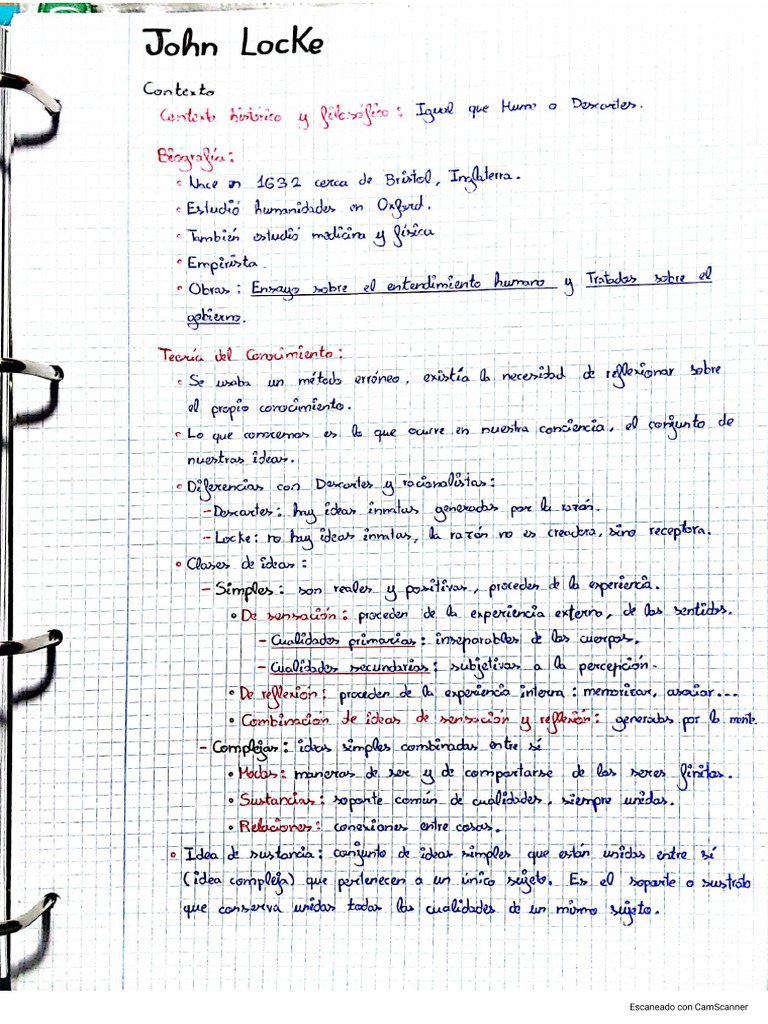 John Locke
Contexto
Contexto histórico y filosófico: Igual que Hume o Descartes.
Biografía:
• Nace en 1632 cerca de Bristol, Inglaterra.
• Estudió humanidades en Oxford.
• También estudió medicina y física
• Empirista.
• Obras: Ensayo sobre el entendimiento humano y Tratados sobre el
gobierno.
Teoría del Conocimiento:
• Se usaba un método erróneo, existía la necesidad de reflexionar sobre
el propio conocimiento.
• Lo que conocemos es lo que ocurre en nuestra conciencia, el conjunto de
nuestras ideas.
• Diferencias con Descartes y racionalistas:
- Descartes: hay ideas innatas generadas por la razón.
- Locke: no hay ideas innatas, la razón no es creadora, sino receptora.
• Clases de ideas:
- Simples: son reales y positivas, proceden de la experiencia.
• De sensación: proceden de la experiencia externa, de los sentidos.
- Cualidades primarias: inseparables de los cuerpos.
- Cualidades secundarias: subjetivas a la percepción.
• De reflexión: proceden de la experiencia interna: memorizar, asociar...
• Combinación de ideas de sensación y reflexión: generadas por la mente.
- Complejas: ideas simples combinadas entre sí
• Modos: maneras de ser y de comportarse de los seres finitos.
• Sustancias: soporte común de cualidades, siempre unidas.
• Relaciones: conexiones entre cosas.
• Idea de sustancia: conjunto de ideas simples que están unidas entre sí
(idea compleja) que pertenecen a un único sujeto. Es el soporte o sustrato
que conserva unidas todas las cualidades de un mismo sujeto.
Escaneado con CamScanner